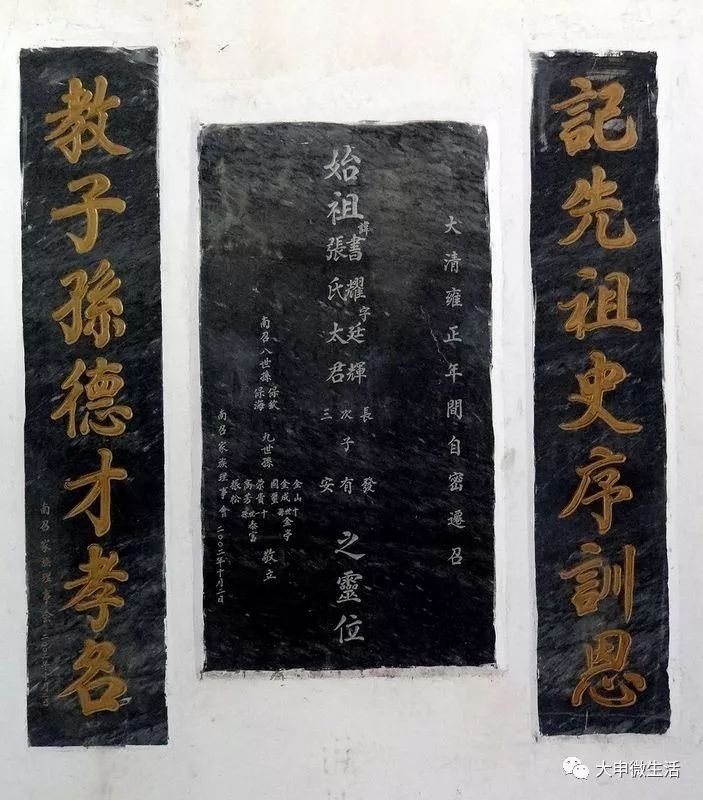 記先祖史序訓恩
大清雍正年間自密遷召
始祖諱書耀字廷輝
張氏太君
長發
次子有
三安
之靈位
南召八世孫保欽
保海
九世孫
金山
金成
國璽
榮貴
高芳
振松
十世
金亭
十一世孫
泰富
敬立
南召家族理事會 二〇〇二年十月二日
教子孫德才孝名
南召家族理事会
大申微生活